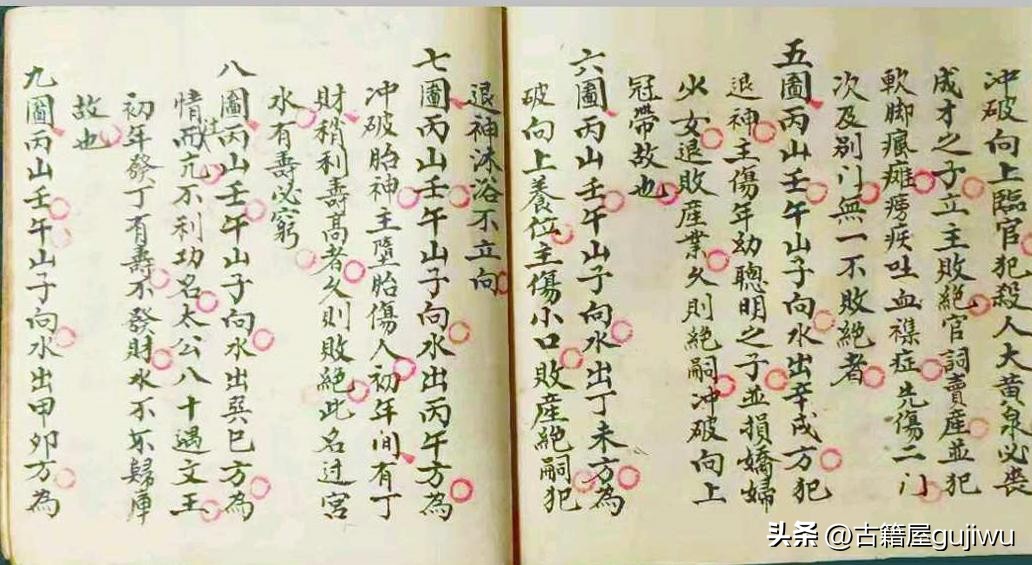 冲破向上臨官犯殺人大黃泉必喪
成才之子立主敗絕官詞賣產並犯
軟脚瘋癱痨疾吐血襍症先傷二门
次及別门無一不敗絕者
五圖丙山壬午山子向水出辛戌方犯
退神主傷年幼聰明之子並損嬌婦
火女退敗產業久則絕嗣冲破向上
冠帶故也
六圖丙山壬午山子向水出丁未方為
破向上養位主傷小口敗產絕嗣犯
退神沐浴不立向
七圖丙山壬午山子向水出丙午方為
冲破胎神主墮胎傷人初年间有丁
財稍利壽高者久則敗絕此名过宮
水有壽必窮
八圖丙山壬午山子向水出巽巳方為
情而亢不利功名太公八十遇文王
初年發丁有壽不發財水不歸庫
故也
九圖丙山壬午山子向水出甲卯方為
头条 @古籍屋gujiwu